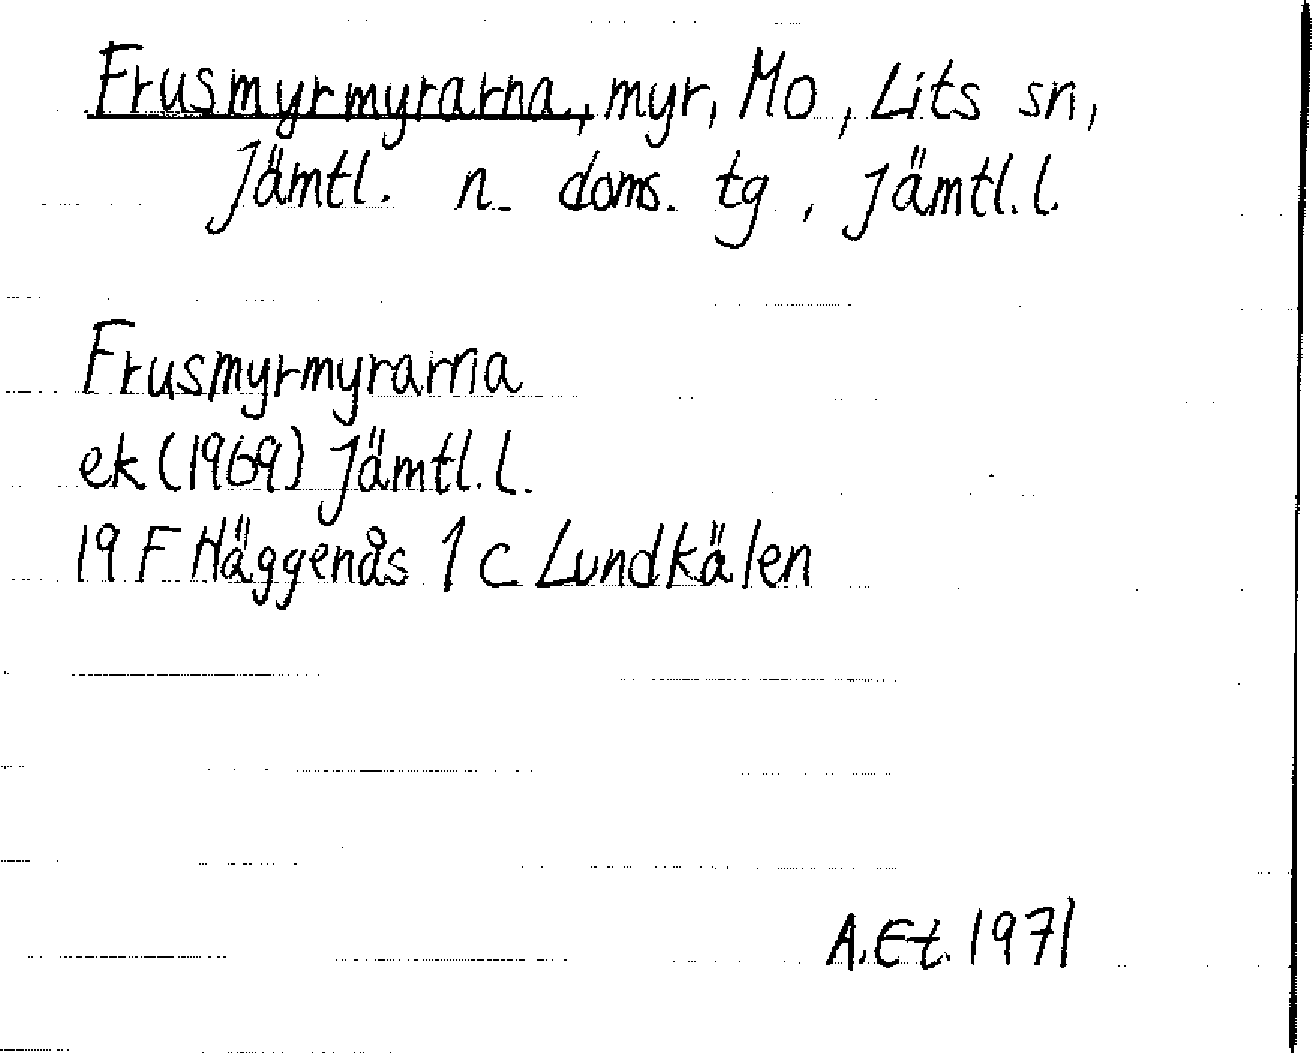 Frusmyrmyrarna, myr, Mo, Lits sn,
Jämtl. n. doms. tg, Jämtl. l.
Frusmyrmyrarna
ek (1969) Jämtl. l.
19 F Häggenås 1 c Lundkälen
A. Et. 1971